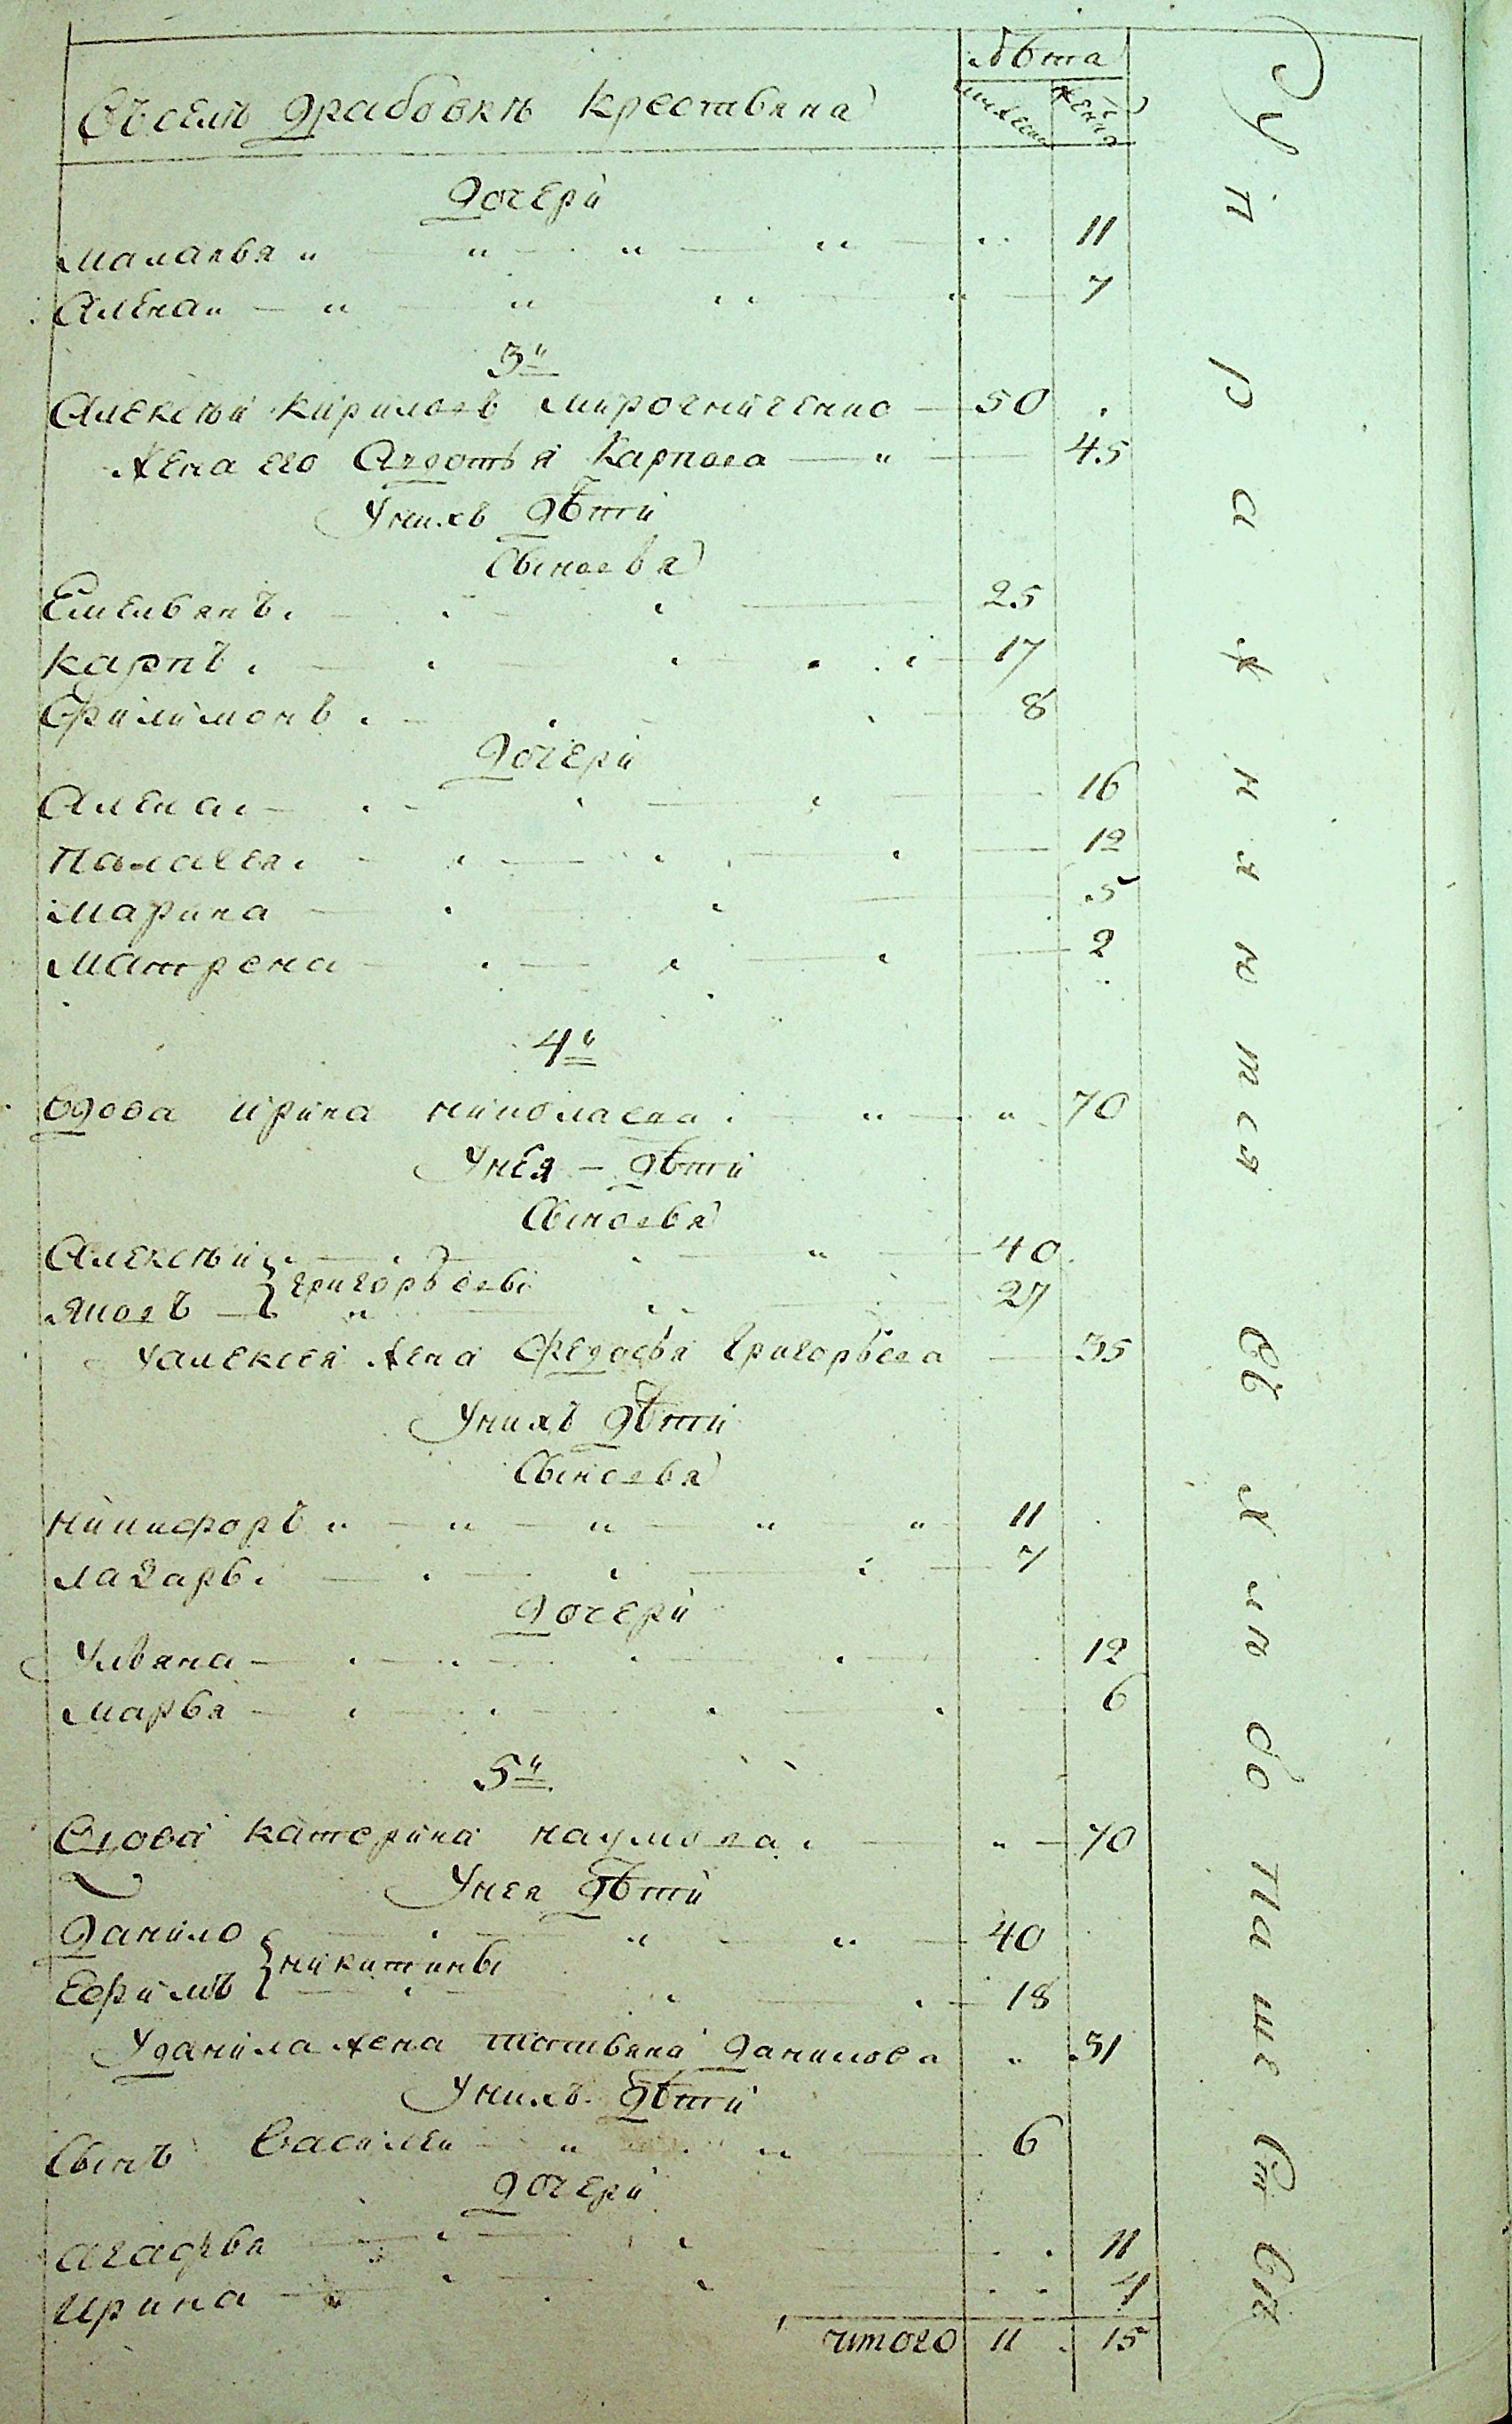 Лѣта
Въ селѣ Драбовкѣ Крестьяна
мужеска женска
Дочери
Маланья 11
Алена 7
3й
Алексѣй Кириловъ Мирошниченко 50
Жена его Авдотья Карпова 45
У нихъ дѣти
Сыновья
Емельянъ 25
Карпъ 17
Филимонъ 8
Дочери
Алена 16
Палагея 12
Марина 5
Матрена 2
4й
Вдова Ирина Николаева 70
У нея дѣти
Сыновья
Алексѣй 40
Григорьевы
Яковъ 27
У Алексея жена Федосья Григорьева 35
У нихъ дѣти
Сыновья
Никифоръ 11
Лазарь 7
Дочери
Ульяна 12
Марья 6
5й
Вдова Катерина Наумова 70
У нея дѣти
Данило 40
Никитины
Ефимъ 18
У Данила жена Татьяна Данилова 31
У нихъ дѣти
Сынъ Василей 6
Дочери
Агафья 11
Ирина 4
итого 11 15